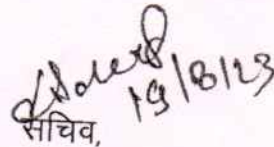 19/8/23
सचिव,